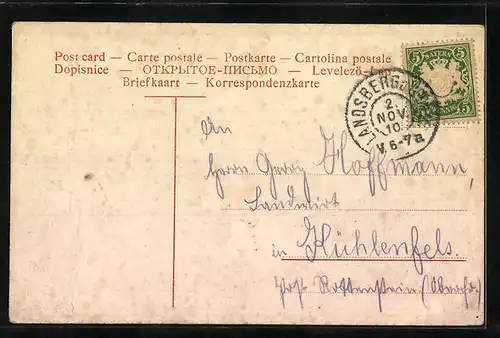 Post card — Carte postale — Postkarte — Cartolina postale
Dopisnice — ОТКРЫТОЕ-ПИСЬМО — Levelező-Lap
Briefkaart — Korrespondenzkarte
BAYERN
5 5
LANDSBERG
2.
NOV.
10.
V. 6-7
An
Herrn Georg Hoffmann,
Landwirt
in Kühlenfels.
Post Pottenstein (Oberfr.)